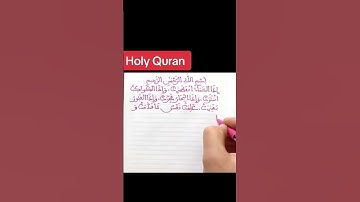 Holy Quran
بِسْمِ اللّٰهِ الرَّحْمٰنِ الرَّحِيْمِ
اِذَا السَّمَآءُ انْفَطَرَتْ وَاِذَا الْكَوَاكِبُ
انْتَثَرَتْ وَاِذَا الْبِحَارُ فُجِّرَتْ وَاِذَا الْقُبُوْرُ
بُعْثِرَتْ عَلِمَتْ نَفْسٌ مَّا قَدَّمَتْ وَ